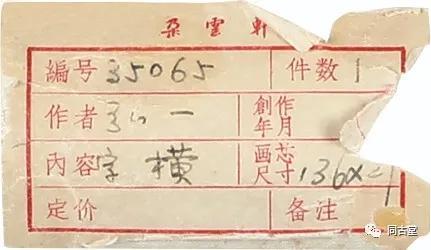 朵雲軒
編号 35065 件数 1
作者 弘一 創作年月
内容 字横 画芯尺寸 136×2
定价 备注
同古堂